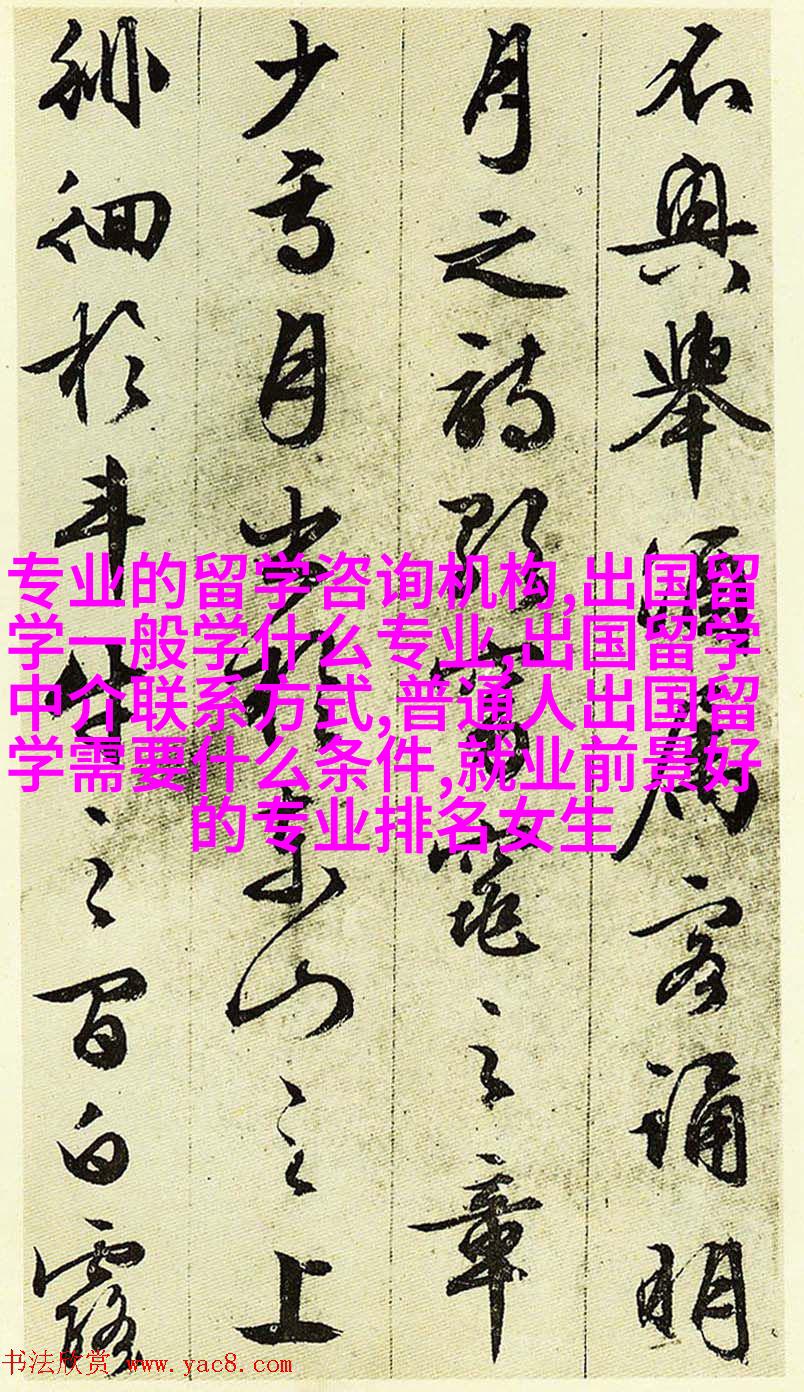 不興舉酒屬客誦明
月之詩歌窈窕之章
少焉月出於東山之上
徘徊於斗牛之間白露
专业的留学咨询机构,出国留
学一般学什么专业,出国留学
中介联系方式,普通人出国留
学需要什么条件,就业前景好
的专业排名女生
书法欣赏 www.yac8.com